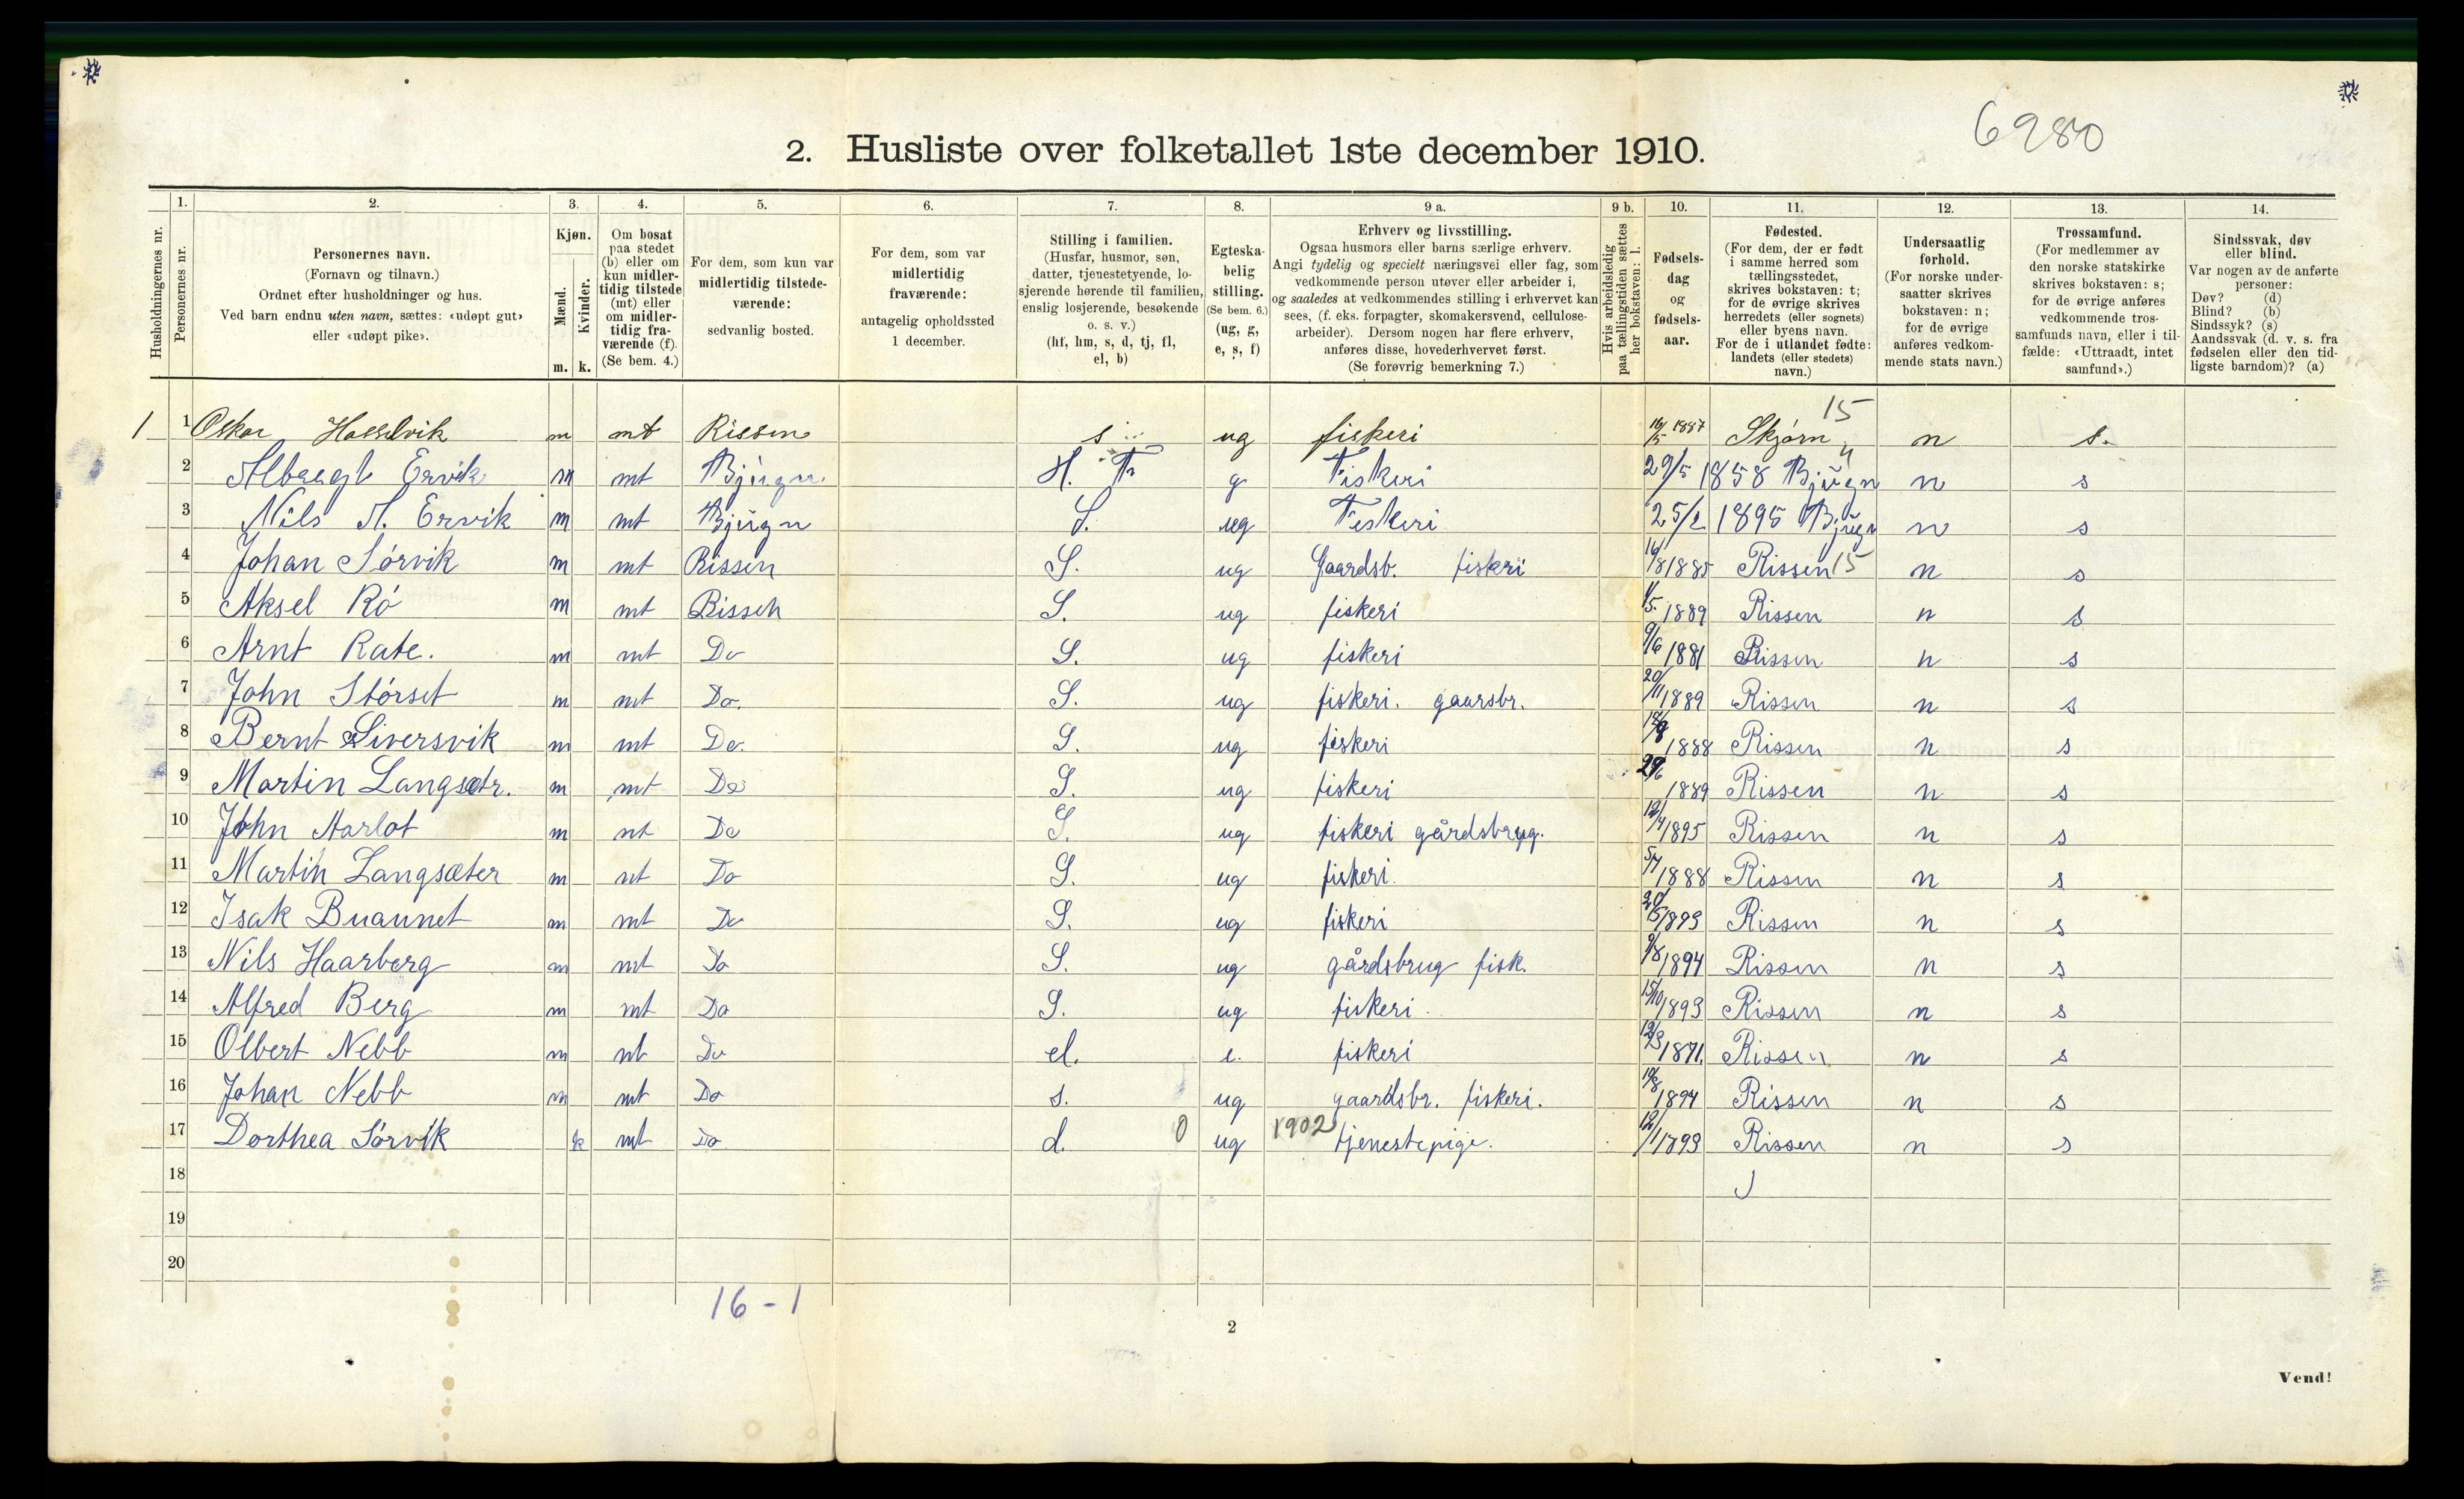 6980
2. Husliste over folketallet 1ste december 1910.
Husholdningernes nr.
1. Personernes nr.
2. Personernes navn. (Fornavn og tilnavn.) Ordnet efter husholdninger og hus. Ved barn endnu uten navn, sættes: «udøpt gut» eller «udøpt pike».
3. Kjøn. Mænd. Kvinder. m. k.
4. Om bosat paa stedet (b) eller om kun midlertidig tilstede (mt) eller om midlertidig fraværende (f). (Se bem. 4.)
5. For dem, som kun var midlertidig tilstedeværende: sedvanlig bosted.
6. For dem, som var midlertidig fraværende: antagelig opholdssted 1 december.
7. Stilling i familien. (Husfar, husmor, søn, datter, tjenestetyende, losjerende hørende til familien, enslig losjerende, besøkende o. s. v.) (hf, hm, s, d, tj, fl, el, b)
8. Egteskabelig stilling. (Se bem. 6.) (ug, g, e, s, f)
9 a. Erhverv og livsstilling. Ogsaa husmors eller barns særlige erhverv. Angi tydelig og specielt næringsvei eller fag, som vedkommende person utøver eller arbeider i, og saaledes at vedkommendes stilling i erhvervet kan sees, (f. eks. forpagter, skomakersvend, cellulosearbeider). Dersom nogen har flere erhverv, anføres disse, hovederhvervet først. (Se forøvrig bemerkning 7.)
9 b. Hvis arbeidsledig paa tællingstiden sættes her bokstaven: l.
10. Fødselsdag og fødselsaar.
11. Fødested. (For dem, der er født i samme herred som tællingsstedet, skrives bokstaven: t; for de øvrige skrives herredets (eller sognets) eller byens navn. For de i utlandet fødte: landets (eller stedets) navn.)
12. Undersaatlig forhold. (For norske undersaatter skrives bokstaven: n; for de øvrige anføres vedkommende stats navn.)
13. Trossamfund. (For medlemmer av den norske statskirke skrives bokstaven: s; for de øvrige anføres vedkommende trossamfunds navn, eller i tilfælde: «Uttraadt, intet samfund».)
14. Sindssvak, døv eller blind. Var nogen av de anførte personer: Døv? (d) Blind? (b) Sindssyk? (s) Aandssvak (d. v. s. fra fødselen eller den tidligste barndom)? (a)
15
1 1 Oskar Hasselvik m mt Rissen s ug fiskeri 16/5 1887 Skjørn n s.
2 Ervik m mt Bjugn H. F g Fiskeri 29/5 1858 Bjugn n s
3 Nils A. Ervik m mt Bjugn S. ug Fiskeri 1895 Bjugn n s
4 Johan Sørvik m mt Rissen S. ug Gaardsb. fiskeri 1885 Rissen 15 n s
5 Aksel Rø m mt Rissen S. ug fiskeri 1/5 1889 Rissen n s
6 Arnt Rate. m mt Do S. ug fiskeri 9/6 1881 Rissen n s
7 John Størset m mt Do. S. ug fiskeri. gaarsbr. 20/11 1889 Rissen n s
8 Bernt Siversvik m mt Do. S. ug fiskeri 1888 Rissen n s
9 Martin Langsætr. m mt Do S. ug fiskeri 1889 Rissen n s
10 John Aarlot m mt Do S. ug fiskeri gårdsbrug. 12/4 1895 Rissen n s
11 Martin Langsæter m mt Do S. ug fiskeri. 5/7 1888 Rissen n s
12 Isak Buaunet m mt Do S. ug fiskeri 20/5 1893 Rissen n s
13 Nils Haarberg m mt Do S. ug gårdsbrug fisk. 9/8 1894 Rissen n s
14 Alfred Berg m mt Do S. ug fiskeri. 15/10 1893 Rissen n s
15 Olbert Nebb m mt Do el. e. fiskeri 12/3 1871. Rissen n s
16 Johan Nebb m mt Do s. ug gaardsbr. fiskeri. 1894 Rissen n s
17 Dorthea Sørvik k mt Do d. 0 ug 1902 tjenestepige. 12/1 1893 Rissen n s
18
19
20
16 - 1
2
Vend!